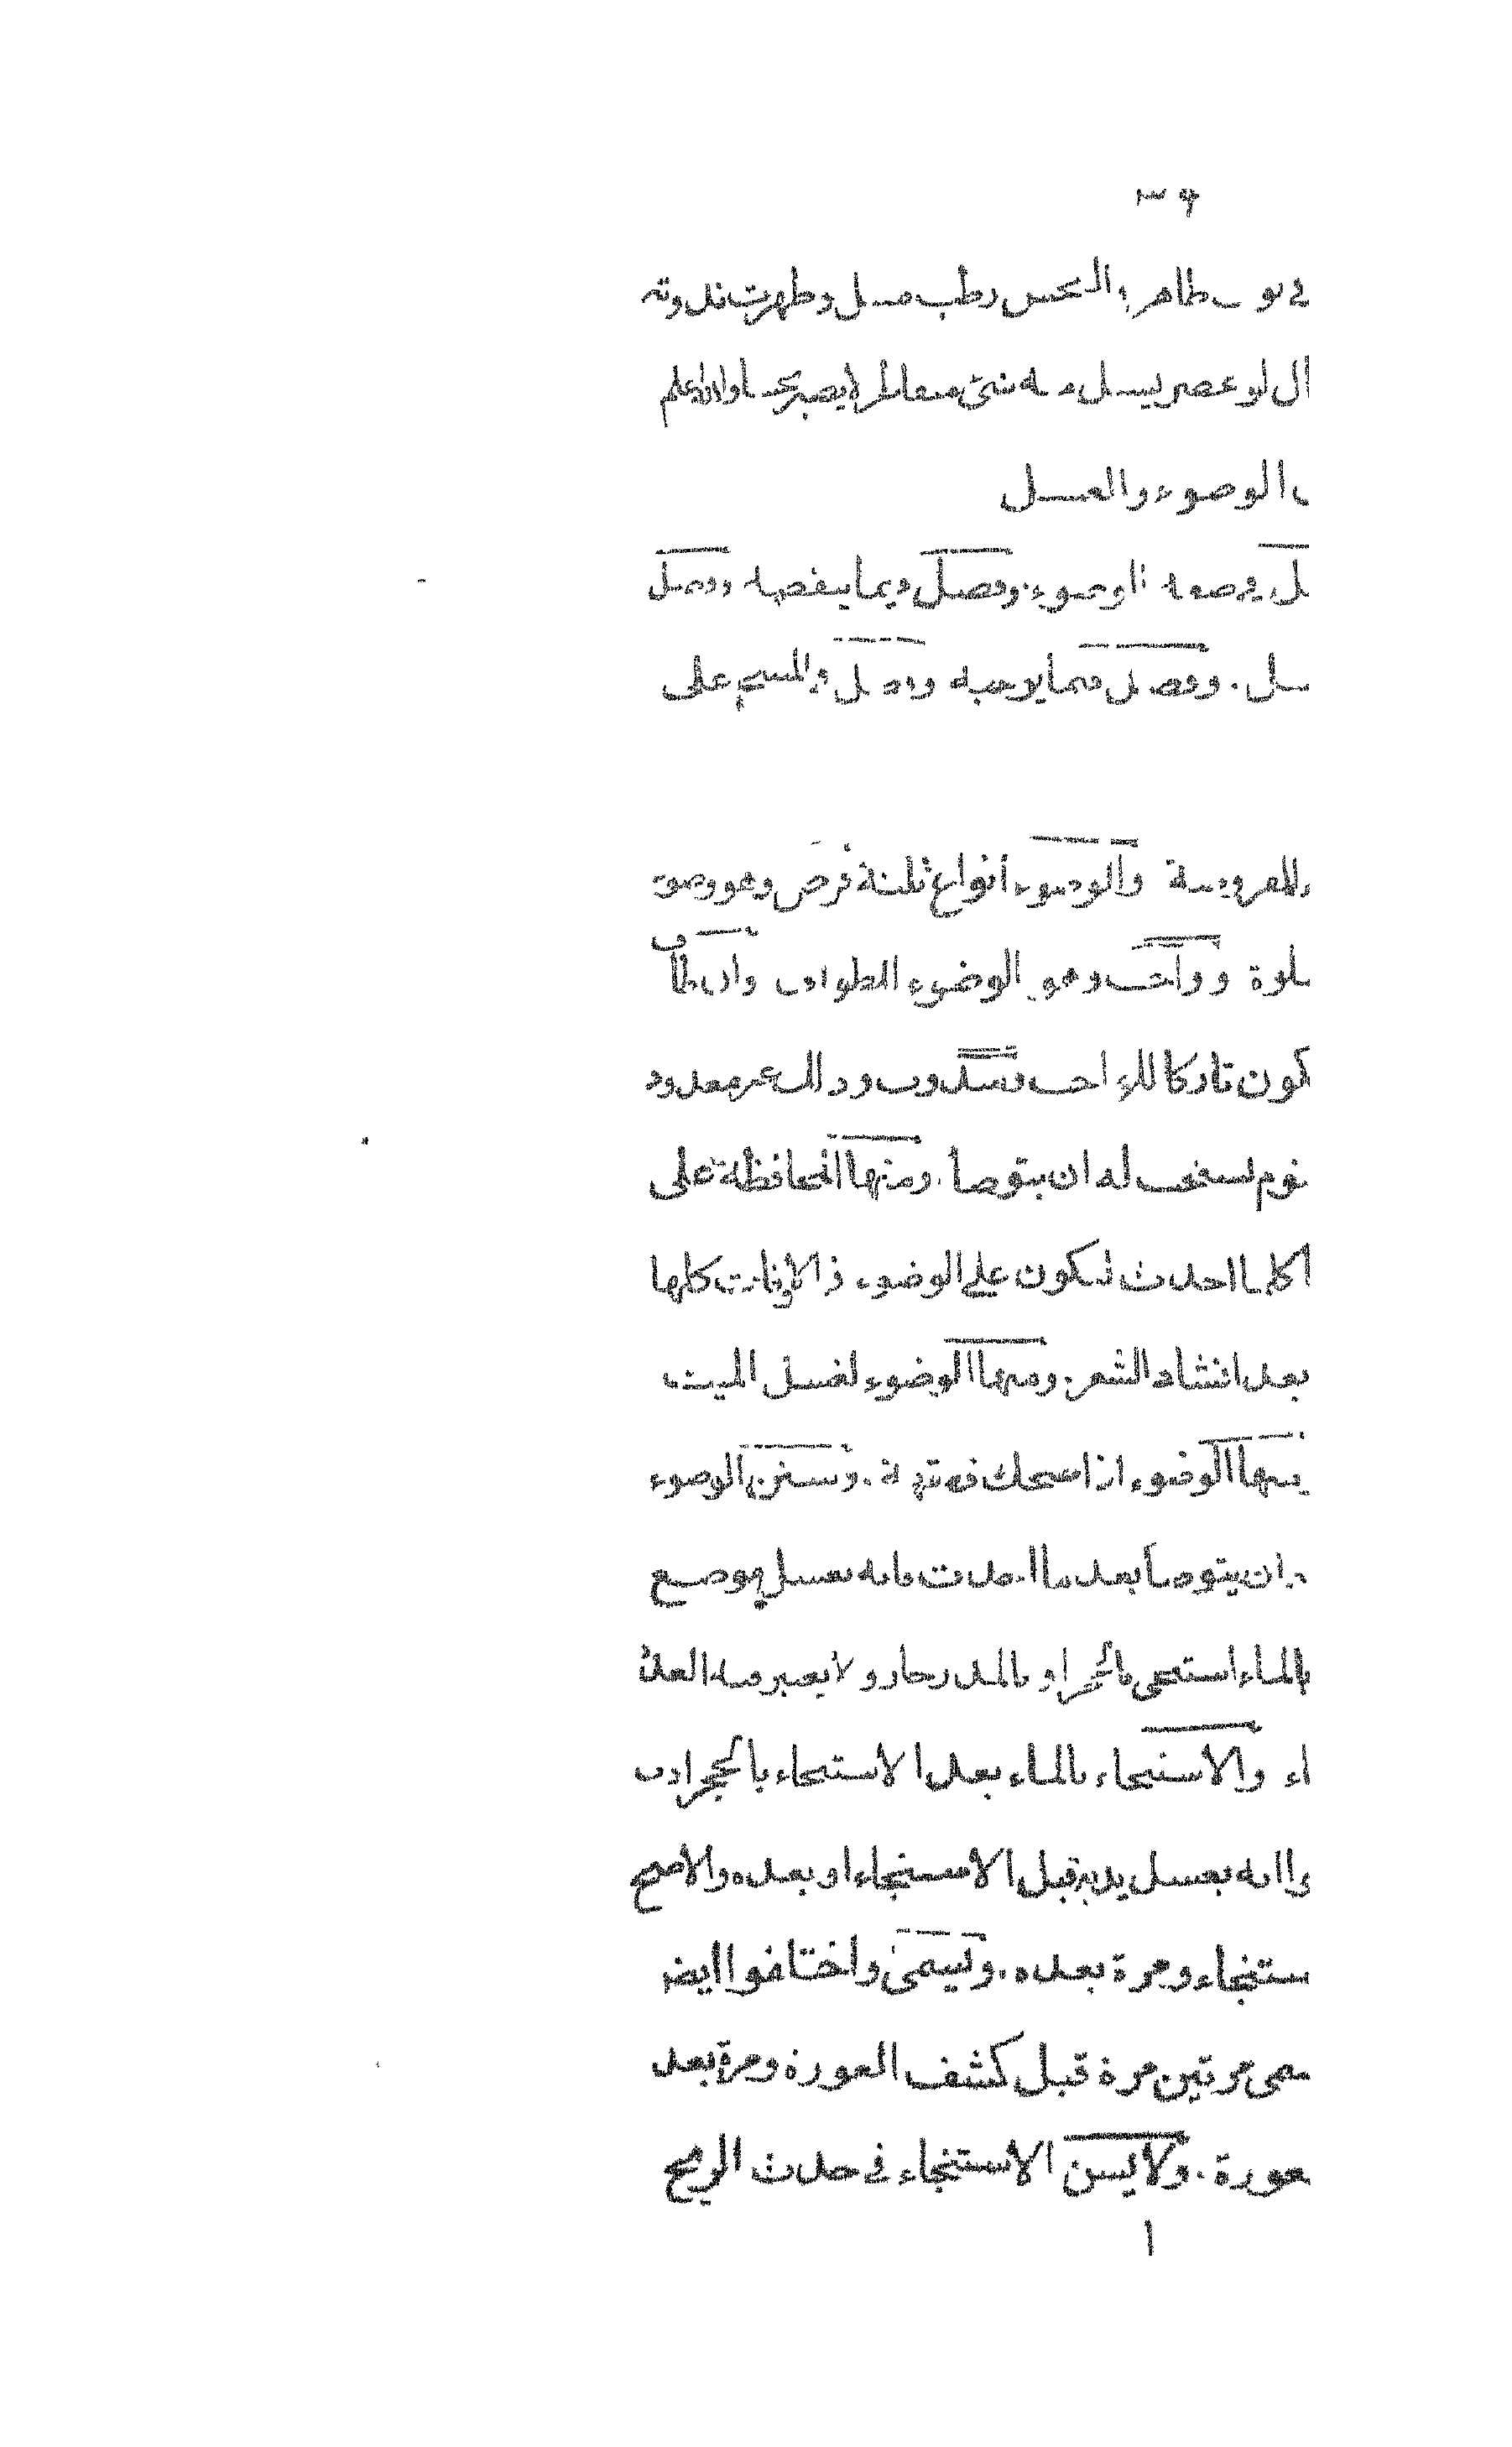 ٣٩
في ثوب طاهر والنجس رطب مبتل وظهرت ندوته
ال لو عصر يسيل منه شئ متقاطر لا يصير نجسا والله اعلم
الوضوء والغسل
في صفة الوضوء. وفصل فيما ينقضه وفصل
وفصل فيما يوجبه وفصل في المسح على
والوضوء أنواع ثلثة فرض وهو وضوء
وواجب وهو الوضوء للطواف وان طاف
يكون تاركا للواجب ومندوب وذلك غير معدود
نوم يستحب له ان يتوضأ. ومنها المحافظة على
كلما احدث ليكون على الوضوء في الاوقات كلها
بعد انشاد الشعر. ومنها الوضوء لغسل الميت
ومنها الوضوء اذا ضحك قهقهة. وسنن الوضوء
ان يتوضأ بعد ما احدث فانه يغسل موضع
بالماء استنجى بالحجر او بالمدر
اء والاستنجاء بالماء بعد الاستنجاء بالحجر ادب
وا انه يغسل يديه قبل الاستنجاء او بعده والاصح
ستنجاء ومرة بعده. ويسمى واختلفوا ايضا
يسمى مرتين مرة قبل كشف العورة ومرة بعد
عورة. ولا يسن الاستنجاء في حدث الريح
١